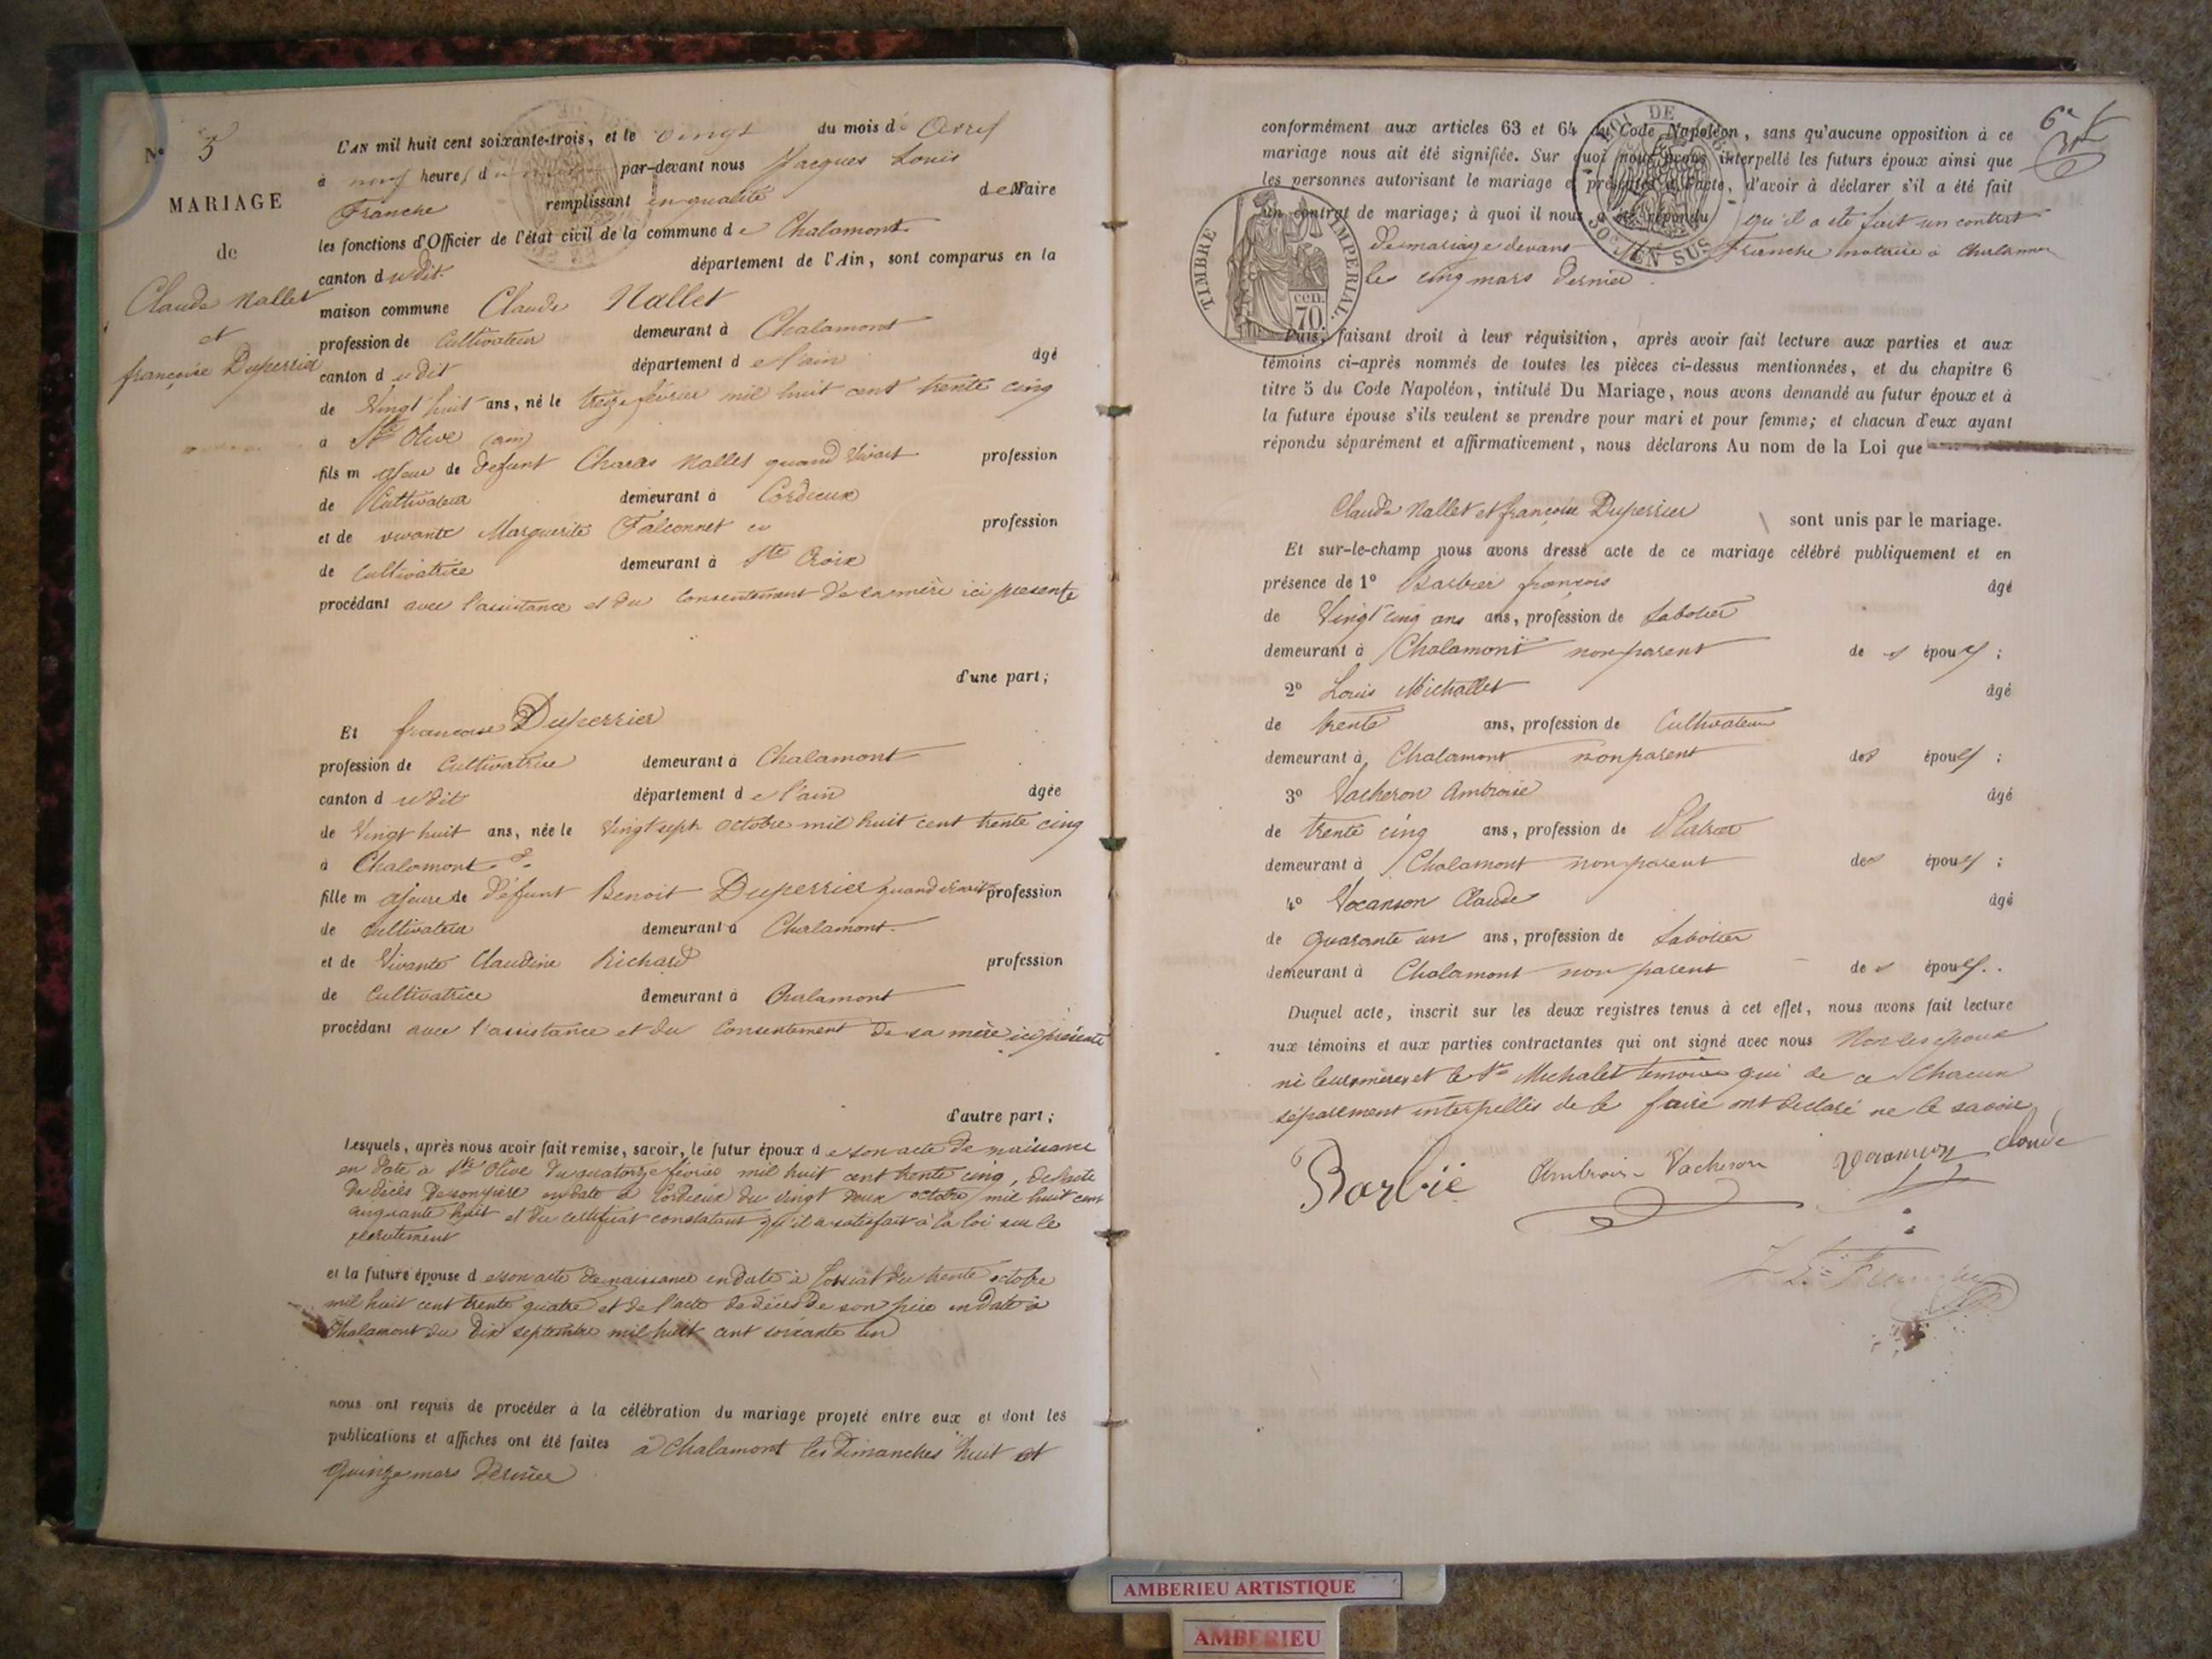 N° 5
MARIAGE
de
Claude Nallet
et
françoise Duperrier
L'AN mil huit cent soixante-trois, et le vingt du mois d' Avril
à neuf heures du matin par-devant nous Jacques Louis
Franche remplissant en qualité de Maire
les fonctions d'Officier de l'état civil de la commune de Chalamont
canton dudit département de l'Ain, sont comparus en la
maison commune Claude Nallet
profession de Cultivateur demeurant à Chalamont
canton dudit département de l'ain âgé
de Vingt huit ans, né le treize février mil huit cent trente cinq
à Ste Olive (ain)
fils majeur de defunt Nallet quand vivait profession
de Cultivateur demeurant à Cordieux
et de vivante Marguerite Falconnet profession
de Cultivatrice demeurant à Ste Croix
procédant avec l'assistance et du consentement de sa mère ici presente
d'une part;
Et francoise Duperrier
profession de Cultivatrice demeurant à Chalamont
canton dudit département de l'ain âgée
de Vingt huit ans, née le Vingt sept octobre mil huit cent trente cinq
à Chalamont
fille majeure de défunt Benoit Duperrier quand vivait profession
de cultivateur demeurant à Chalamont
et de Vivante Claudine Richard profession
de Cultivatrice demeurant à Chalamont
procédant avec l'assistance et du Consentement de sa mère ici présente
d'autre part;
Lesquels, après nous avoir fait remise, savoir, le futur époux de son acte de naissance
en date à Ste Olive du quatorze février mil huit cent trente cinq, de l'acte
de décès de son père en date à Cordieux du vingt deux octobre mil huit cent
cinquante huit et du certificat constatant qu'il a satisfait à la loi sur le
recrutement
et la future épouse de son acte de naissance en date à du trente octobre
mil huit cent trente quatre et de l'acte de décès de son père en date à
Chalamont du dix septembre mil huit cent soixante un
nous ont requis de procéder à la célébration du mariage projeté entre eux et dont les
publications et affiches ont été faites à Chalamont les dimanches huit et
Quinze mars dernier
6e
conformément aux articles 63 et 64 du Code Napoléon, sans qu'aucune opposition à ce
mariage nous ait été signifiée. Sur quoi nous avons interpellé les futurs époux ainsi que
les personnes autorisant le mariage et présentes à l'acte, d'avoir à déclarer s'il a été fait
un contrat de mariage; à quoi il nous a été répondu qu'il a été fait un contrat
de mariage devant Franche notaire à Chalamont
le cinq mars dernier.
TIMBRE IMPERIAL
cen. 70
50c EN SUS
Puis, faisant droit à leur réquisition, après avoir fait lecture aux parties et aux
témoins ci-après nommés de toutes les pièces ci-dessus mentionnées, et du chapitre 6
titre 5 du Code Napoléon, intitulé Du Mariage, nous avons demandé au futur époux et à
la future épouse s'ils veulent se prendre pour mari et pour femme; et chacun d'eux ayant
répondu séparément et affirmativement, nous déclarons Au nom de la Loi que
Claude Nallet et françoise Duperrier sont unis par le mariage.
Et sur-le-champ nous avons dressé acte de ce mariage célébré publiquement et en
présence de 1° Barbier françois âgé
de Vingt cinq ans ans, profession de Sabotier
demeurant à Chalamont non parent des époux;
2° Louis Michallet âgé
de trente ans, profession de Cultivateur
demeurant à Chalamont non parent des époux;
3° Vacheron Ambroise âgé
de trente cinq ans, profession de
demeurant à Chalamont non parent des époux;
4° Vocanson Claude âgé
de quarante un ans, profession de Sabotier
demeurant à Chalamont non parent des époux.
Duquel acte, inscrit sur les deux registres tenus à cet effet, nous avons fait lecture
aux témoins et aux parties contractantes qui ont signé avec nous Non les époux
ni leurs mères et le Sr Michalet temoin qui de ce Chacun
séparement interpellés de le faire ont declaré ne le savoir
Barbié Ambroise Vacheron Vocanson Claude
Franche
AMBERIEU ARTISTIQUE
AMBERIEU